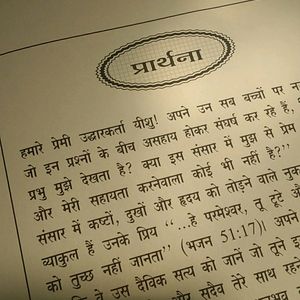 प्रार्थना
हमारे प्रेमी उद्धारकर्ता यीशु! अपने उन सब बच्चों पर
जो इन प्रश्नों के बीच असहाय होकर संघर्ष कर रहे हैं,
प्रभु मुझे देखता है? क्या इस संसार में मुझ से प्रेम
और मेरी सहायता करनेवाला कोई भी नहीं है?”
संसार में कष्टों, दुखों और हृदय को तोड़ने वाले
व्याकुल हैं उनके प्रिय “...हे परमेश्वर, तू टूटे
को तुच्छ नहीं जानता” (भजन 51:17)! अपनी
उस दैविक सत्य को जानें जो तूने
और सदैव तेरे साथ